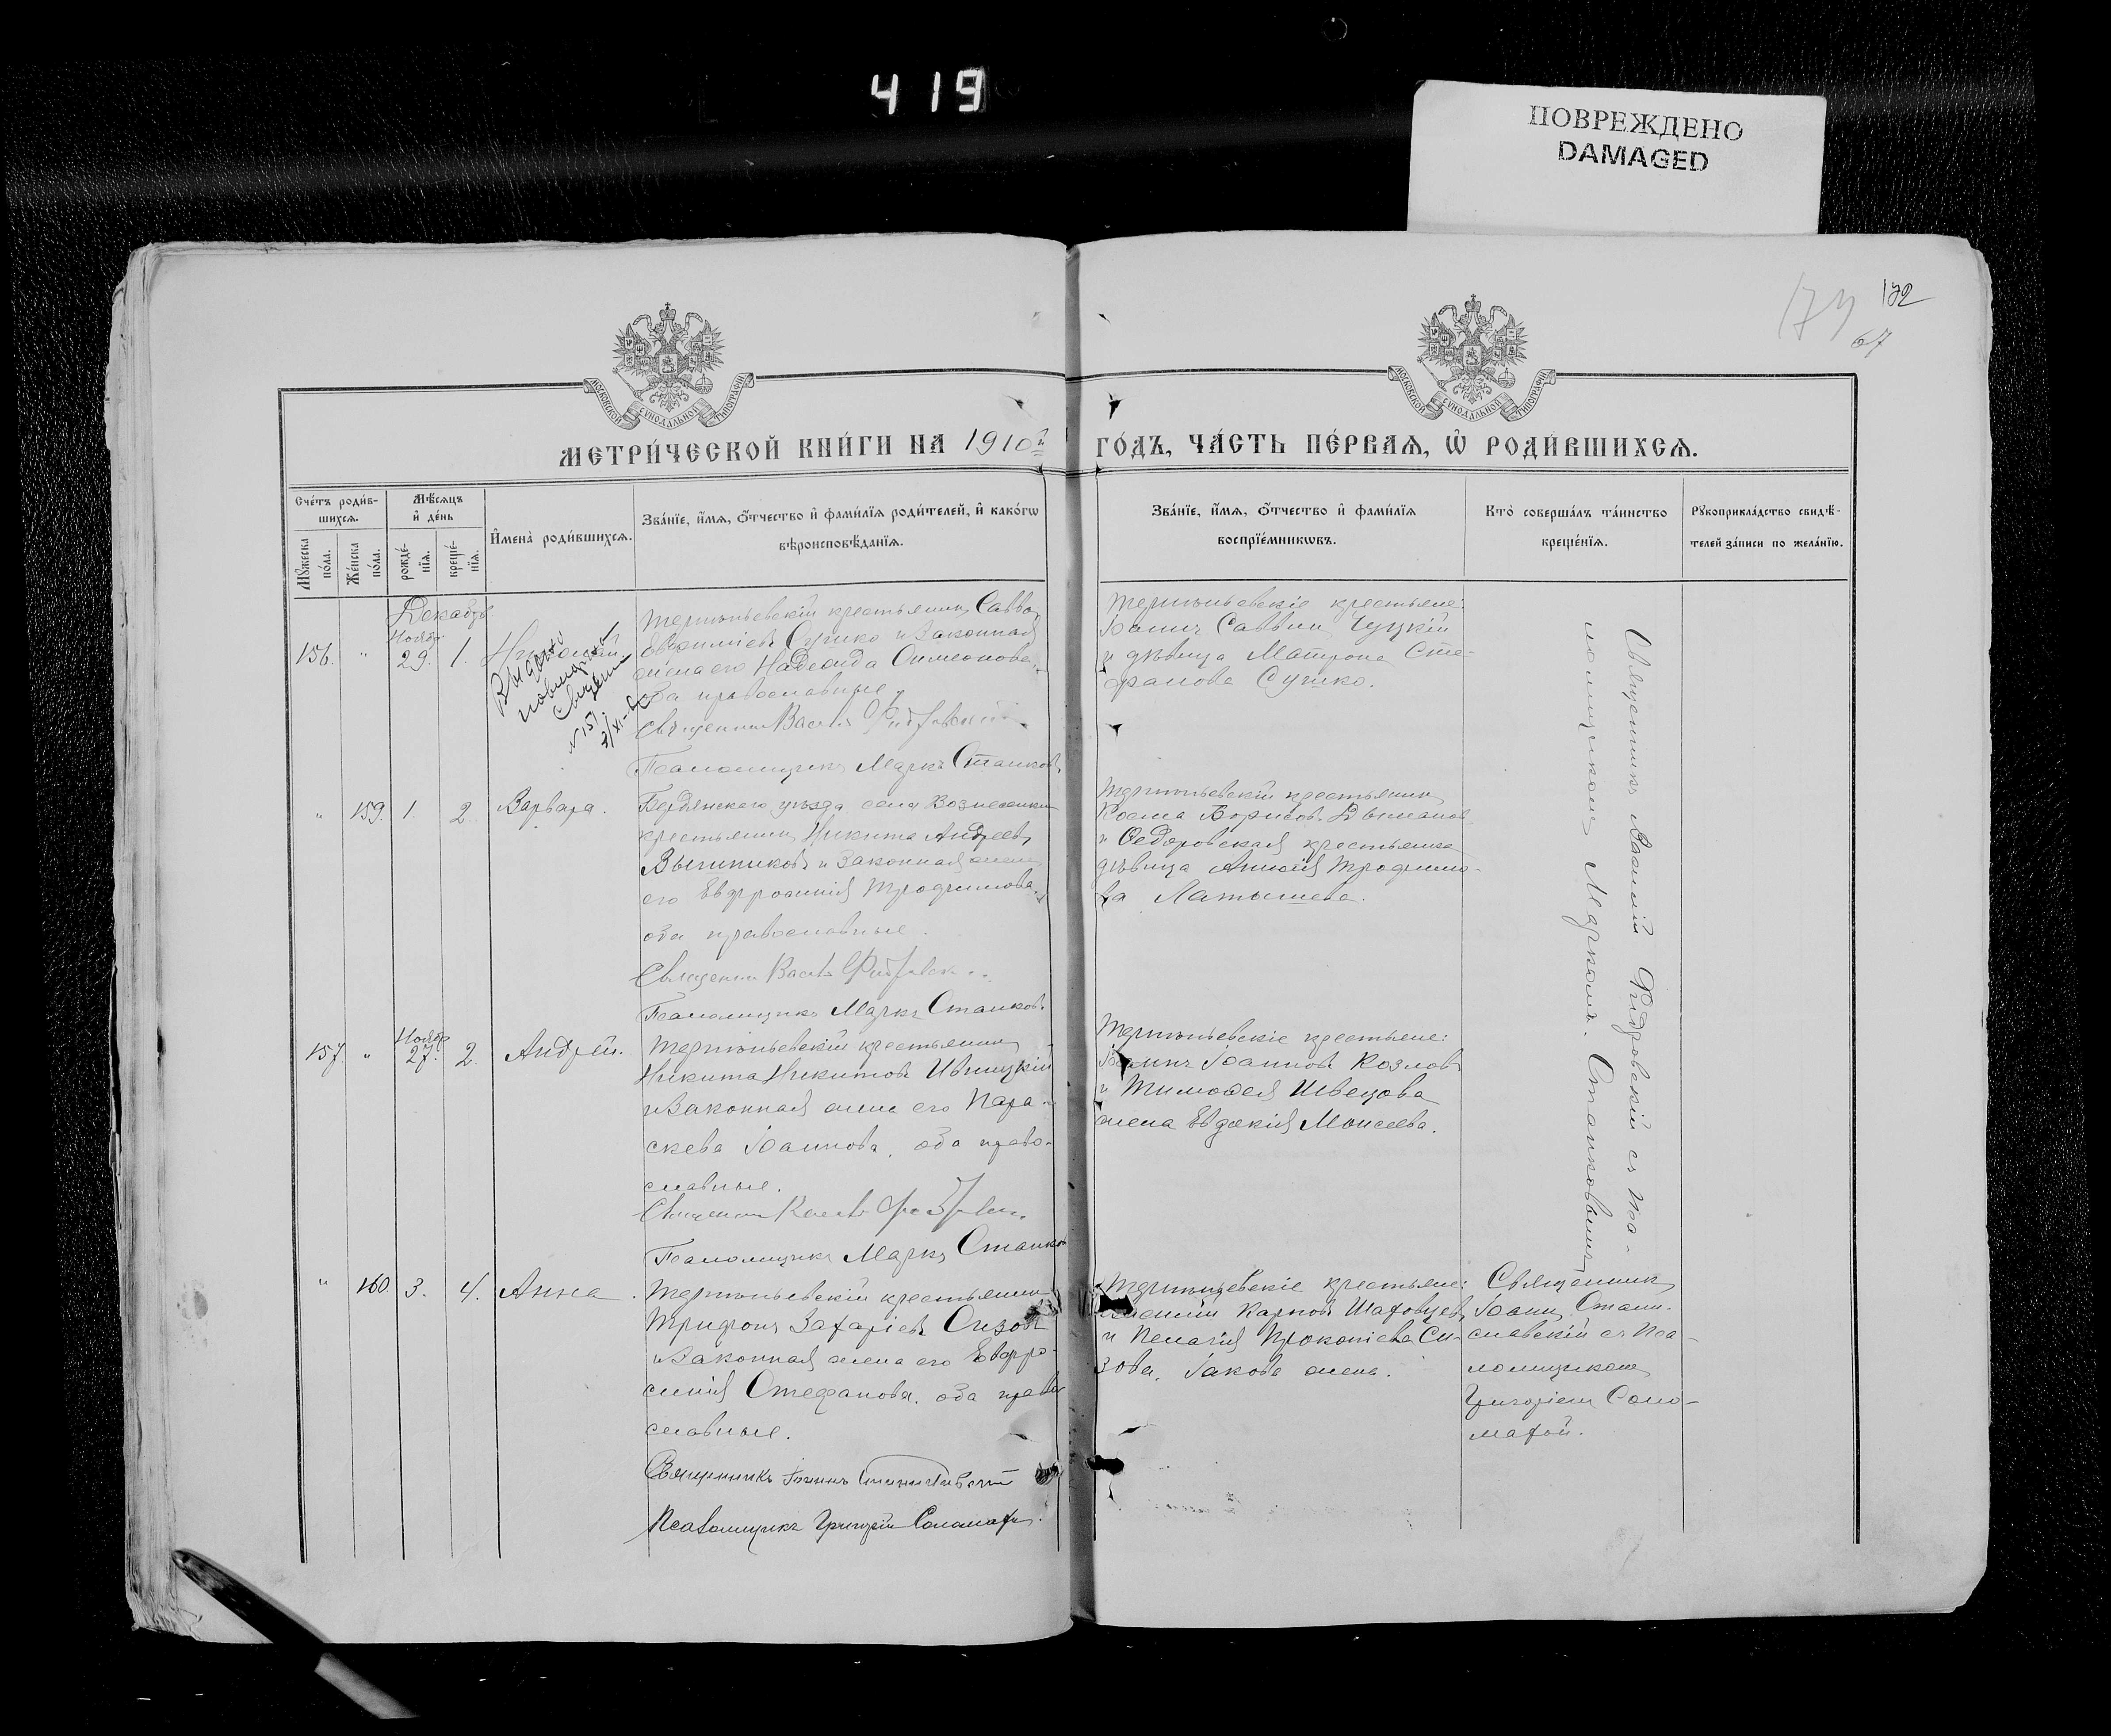 419
ПОВРЕЖДЕНО
DAMAGED
132
67
МОСКОВСКОЙ СУНОДАЛЬНОЙ ТИПОГРАФІИ
МОСКОВСКОЙ СУНОДАЛЬНОЙ ТИПОГРАФІИ
МЕТРИ́ЧЕСКОЙ КНИ́ГИ НА 1910 ГО́ДЪ, ЧА́СТЬ ПЕ́РВАѦ, Ѡ РОДИ́ВШИХСѦ.
Сче́тъ роди́в-
шихсѧ.
Мѹ́жеска по́ла.
Же́нска по́ла.
Мѣ́сѧцъ
и де́нь
рожде́-
нїѧ.
креще́-
нїѧ.
Имена̀ роди́вшихсѧ.
Зва́нїе, и́мѧ, ѻ́тчество и фами́лїѧ роди́телей, и како́гѡ
вѣроисповѣ́данїѧ.
Зва́нїе, и́мѧ, ѻ́тчество и фами́лїѧ
воспрїе́мникѡвъ.
Кто̀ соверша́лъ та́инство
креще́нїѧ.
Рѹкоприкла́дство свидѣ́-
телей за́писи по жела́нїю.
Декабрь
156. " Ноябр 29. 1. Николай
Терпѣньевскій крестьянинъ Савва
Евѳиміевъ Сушко и законная
жена его Надежда Симеонова,
оба православные.
Священникъ Василій Фидровскій
Псаломщикъ Маркъ Станковъ
Терпѣньевскіе крестьяне:
Іоаннъ Саввинъ Чуцкій
и дѣвица Матрона Сте-
фанова Сушко.
Выдано
Свидѣт
" 159. 1. 2. Варвара.
Бердянскаго уѣзда села Вознесенки
крестьянинъ Никита Андреевъ
и законная жена
его Евфросинія Трофимова,
оба православные.
Священникъ Василій Фидровскій
Псаломщикъ Маркъ Станковъ
Терпѣньевскій крестьянинъ
Косма Борисовъ
и Ѳедоровская крестьянка
дѣвица Анисія Трофимо-
ва Латышева.
157. " Ноябр 27. 2. Андрей.
Терпѣньевскій крестьянинъ
Никита Никитовъ Ивницкій
и законная жена его Пара-
скева Іоаннова, оба право-
славные.
Священникъ Василій Фидровскій
Псаломщикъ Маркъ Станковъ
Терпѣньевскіе крестьяне:
Іоаннъ Іоанновъ Козловъ
и Тимоѳея Швецова
жена Евдокія Моисеева.
Священникъ Василій Фидровскій съ пса-
ломщикомъ Маркомъ Станковымъ
" 160. 3. 4. Анна.
Терпѣньевскій крестьянинъ
Трифонъ Захаріевъ Сизовъ
и законная жена его Евфро-
синія Стефанова, оба право
славные.
Священникъ Іоаннъ Станиславскій
Псаломщикъ Григорій Соломаха.
Терпѣньевскіе крестьяне:
Карповъ Шаховцевъ
и Пелагія Прокопіева Си-
зова, Іакова жена.
Священникъ
Іоаннъ Стани-
славскій съ пса-
ломщикомъ
Григоріемъ Соло-
махой.